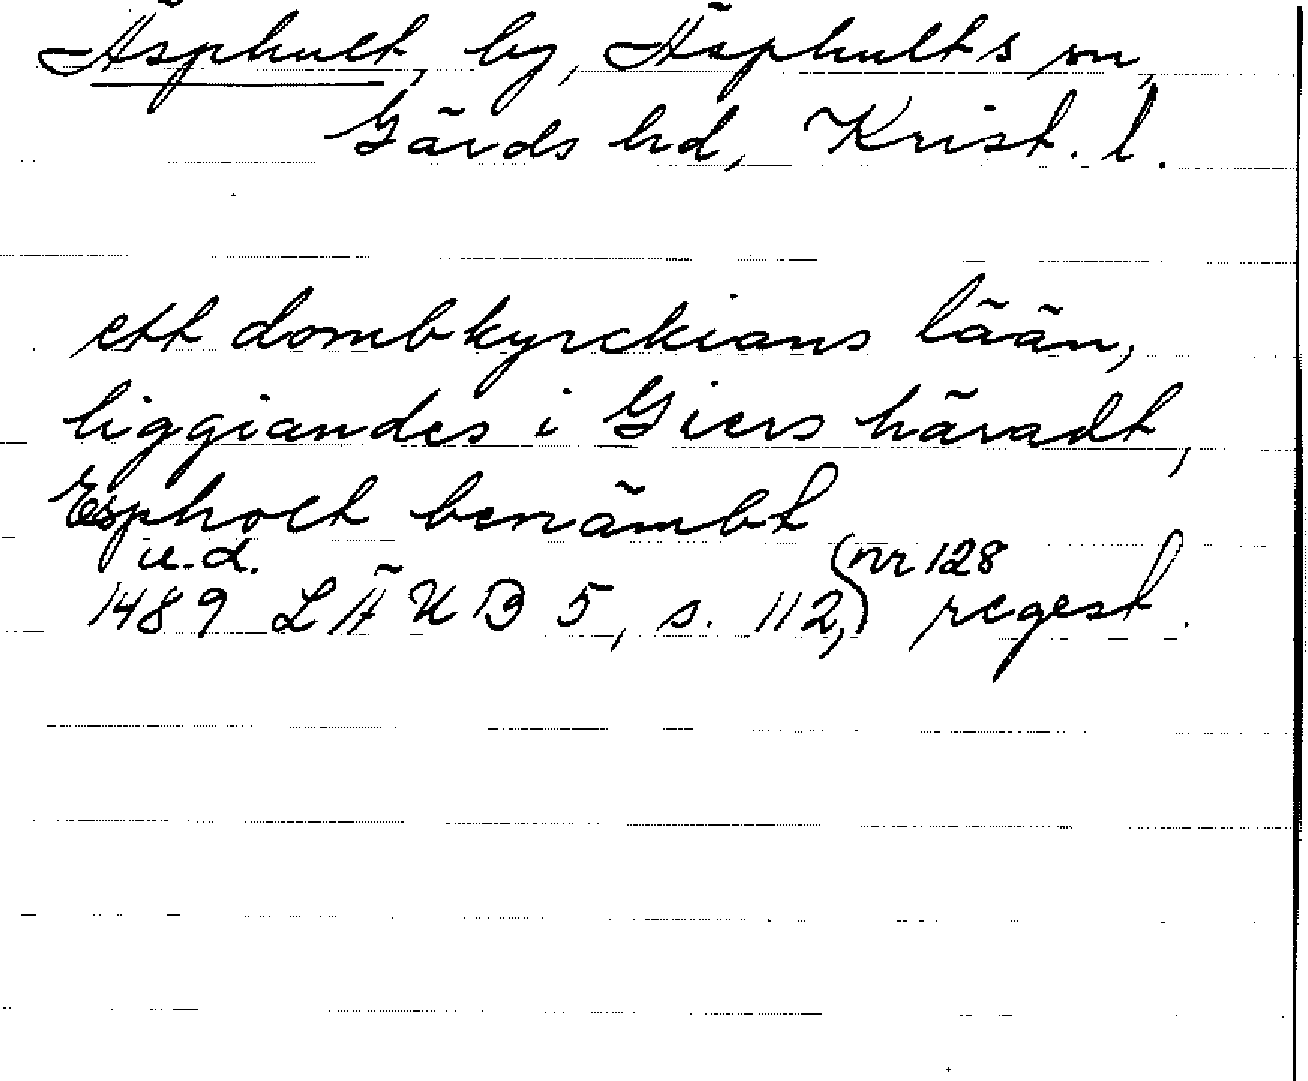 Äsphult, by, Äsphults sn,
Gärds hd, Krist. l.
ett dombkyrckians lään,
liggiandes i Giers häradt,
Espholt benämbt
u.d. nr 128
1489 LÄUB 5, s. 112, regest.